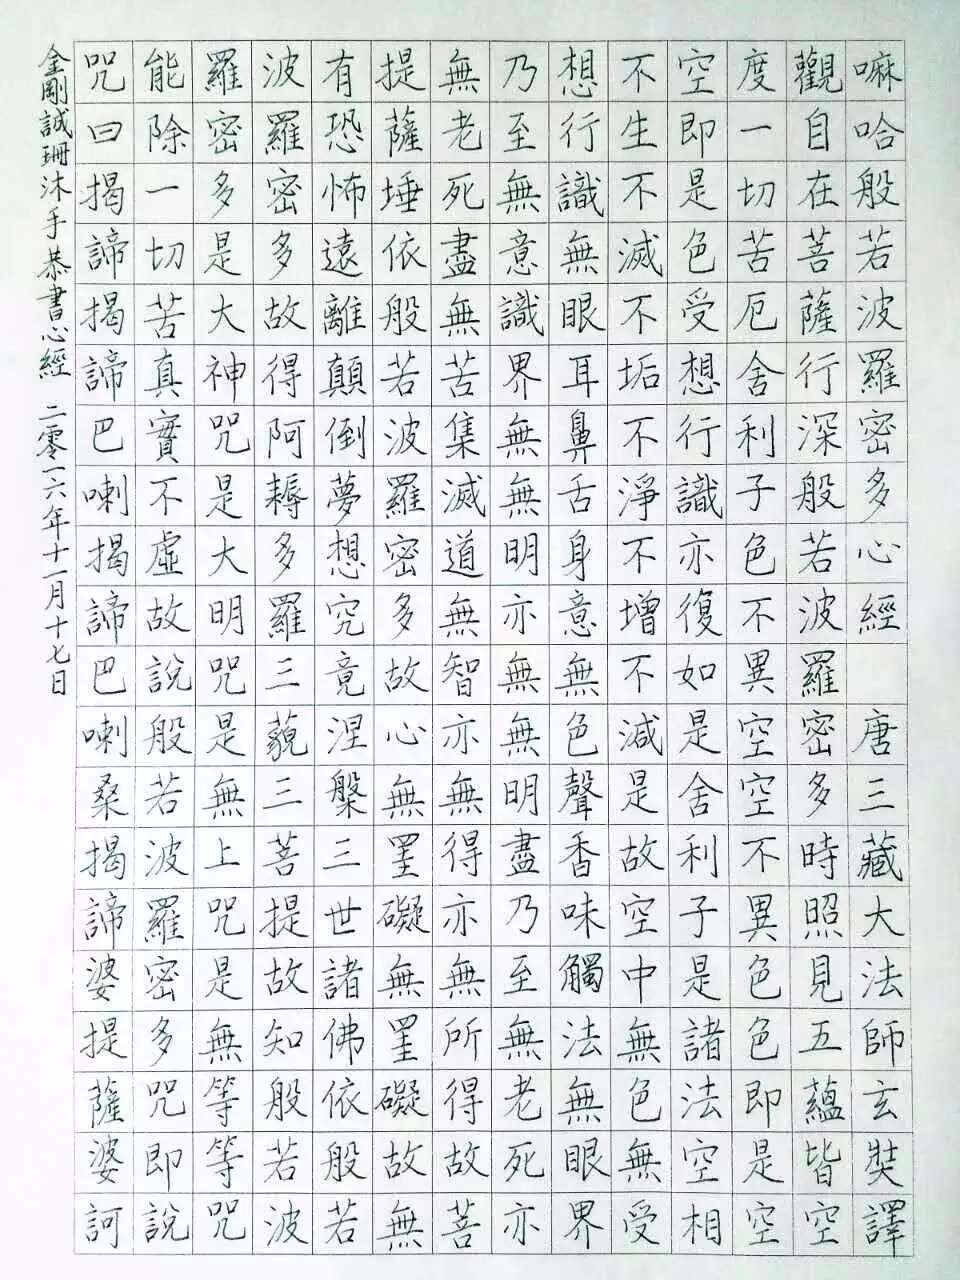 嘛哈般若波羅密多心經 唐三藏大法師玄奘譯
觀自在菩薩行深般若波羅密多時照見五蘊皆空
度一切苦厄舍利子色不異空空不異色色即是空
空即是色受想行識亦復如是舍利子是諸法空相
不生不滅不垢不淨不增不減是故空中無色無受
想行識無眼耳鼻舌身意無色聲香味觸法無眼界
乃至無意識界無無明亦無無明盡乃至無老死亦
無老死盡無苦集滅道無智亦無得亦無所得故菩
提薩埵依般若波羅密多故心無罣礙無罣礙故無
有恐怖遠離顛倒夢想究竟涅槃三世諸佛依般若
波羅密多故得阿耨多羅三藐三菩提故知般若波
羅密多是大神咒是大明咒是無上咒是無等等咒
能除一切苦真實不虛故說般若波羅密多咒即說
咒曰揭諦揭諦巴喇揭諦巴喇桑揭諦婆提薩婆訶
金剛誠珊沐手恭書心經 二零一六年十一月十七日